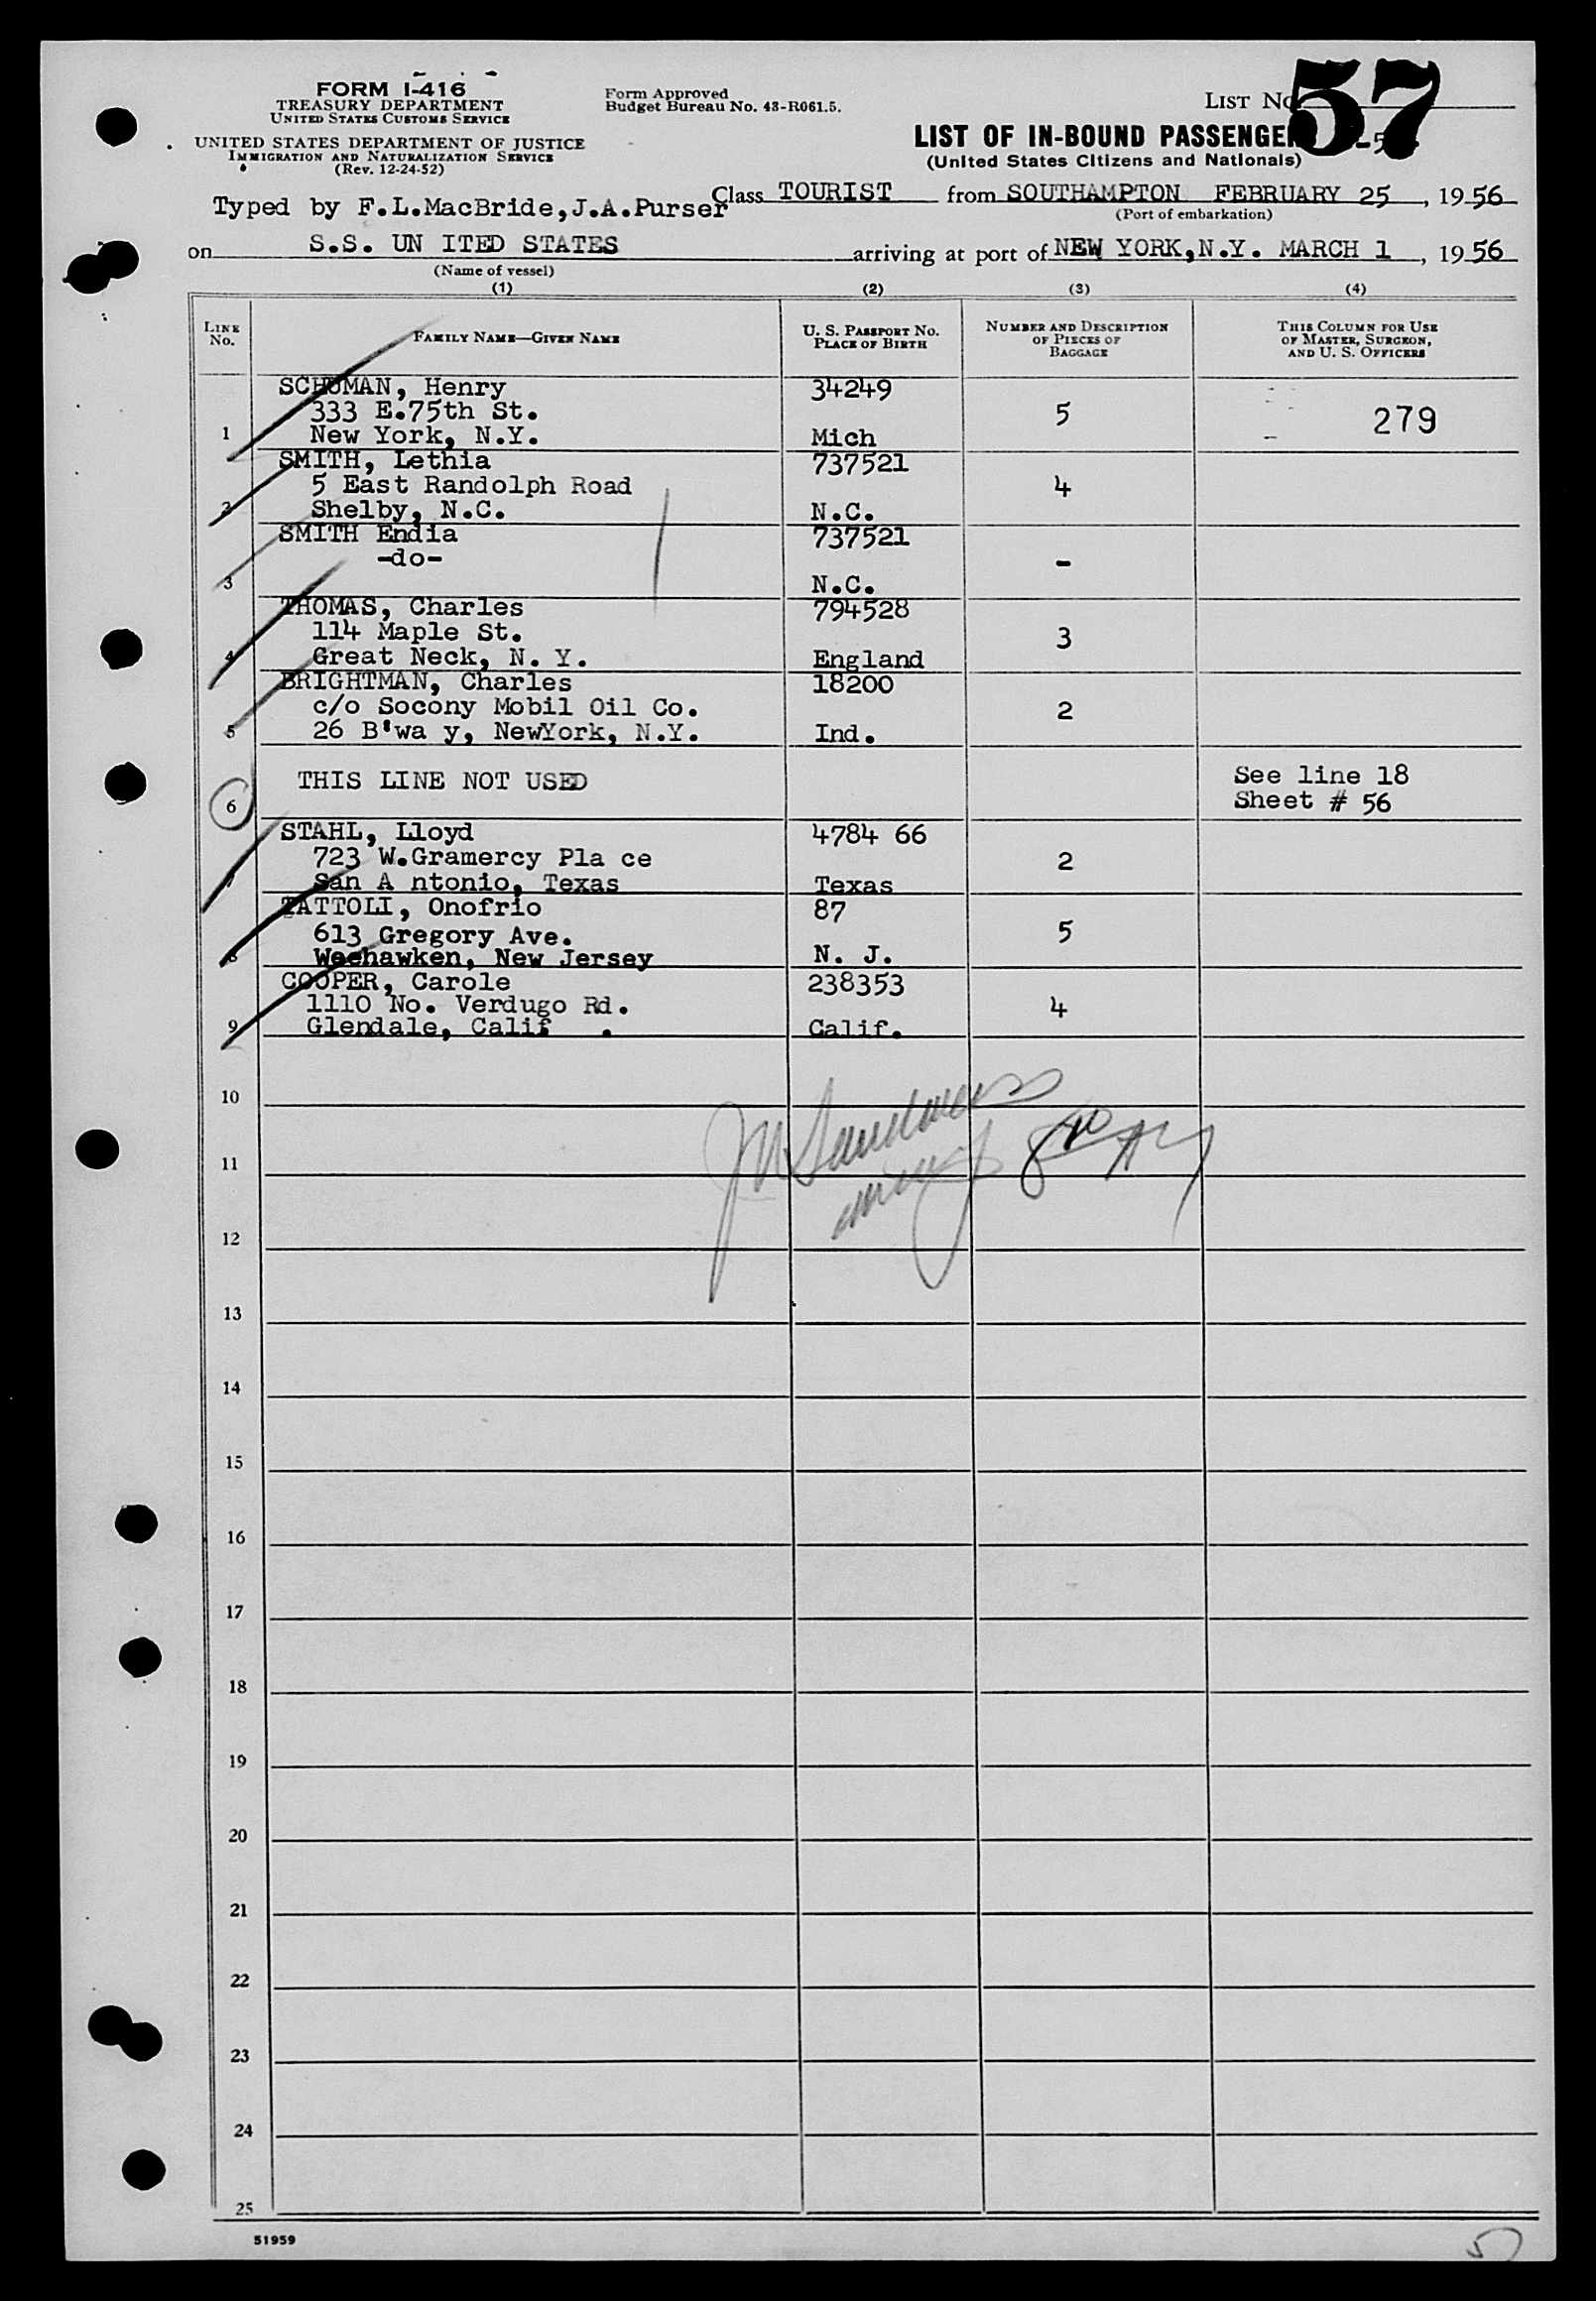 FORM I-416
TREASURY DEPARTMENT
UNITED STATES CUSTOMS SERVICE
UNITED STATES DEPARTMENT OF JUSTICE
IMMIGRATION AND NATURALIZATION SERVICE
(Rev. 12-24-52)
Form Approved
Budget Bureau No. 43-R061.5.
LIST No
57
LIST OF IN-BOUND PASSENGER
(United States Citizens and Nationals)
Typed by F.L.MacBride,J.A.Purser
Class TOURIST from SOUTHAMPTON FEBRUARY 25, 1956
(Port of embarkation)
on S.S. UN ITED STATES arriving at port of NEW YORK,N.Y. MARCH 1, 1956
(Name of vessel)
(1) (2) (3) (4)
LINE No. FAMILY NAME—GIVEN NAME U. S. PASSPORT NO. PLACE OF BIRTH NUMBER AND DESCRIPTION OF PIECES OF BAGGAGE THIS COLUMN FOR USE OF MASTER, SURGEON, AND U. S. OFFICERS
SCHUMAN, Henry 34249
333 E.75th St. 5 279
1 New York, N.Y. Mich
SMITH, Lethia 737521
5 East Randolph Road 4
2 Shelby, N.C. N.C.
SMITH Endia 737521
-do- -
3 N.C.
THOMAS, Charles 794528
114 Maple St. 3
4 Great Neck, N. Y. England
BRIGHTMAN, Charles 18200
c/o Socony Mobil Oil Co. 2
5 26 B'wa y, NewYork, N.Y. Ind.
6 THIS LINE NOT USED See line 18
Sheet # 56
STAHL, Lloyd 4784 66
723 W.Gramercy Pla ce 2
7 San A ntonio, Texas Texas
TATTOLI, Onofrio 87
613 Gregory Ave. 5
8 Weehawken, New Jersey N. J.
COOPER, Carole 238353
1110 No. Verdugo Rd. 4
9 Glendale, Calif . Calif.
10
11
12
13
14
15
16
17
18
19
20
21
22
23
24
25
51959